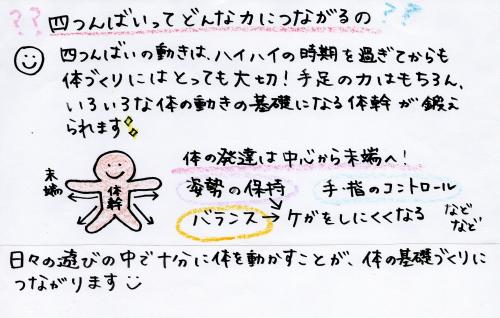 ?? 四つんばいってどんな力につながるの ??
四つんばいの動きは、ハイハイの時期を過ぎてからも
体づくりにはとっても大切！手足の力はもちろん、
いろいろな体の動きの基礎になる体幹が鍛え
られます
体の発達は中心から末端へ！
末端
体幹
姿勢の保持 手・指のコントロール
バランス→ケガをしにくくなる などなど
日々の遊びの中で十分に体を動かすことが、体の基礎づくりに
つながります